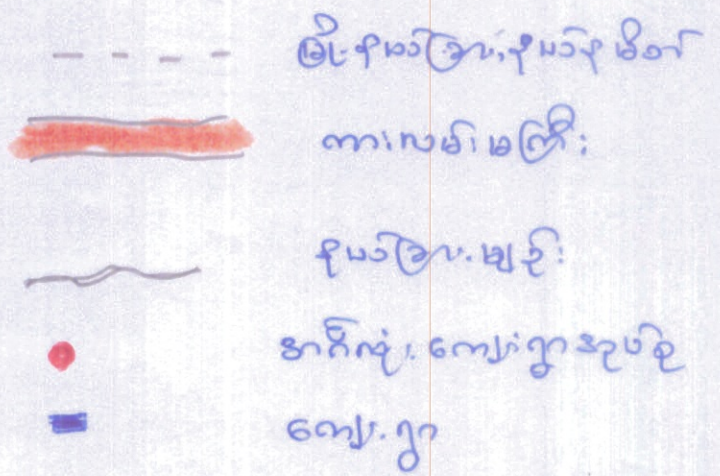 မြို့နယ်ခြား, နယ်နမိတ်
ကားလမ်းမကြီး
နယ်ခြားမျဉ်း
အင်္ဂလုံး, ကျေးရွာအုပ်စု
ကျေးရွာ